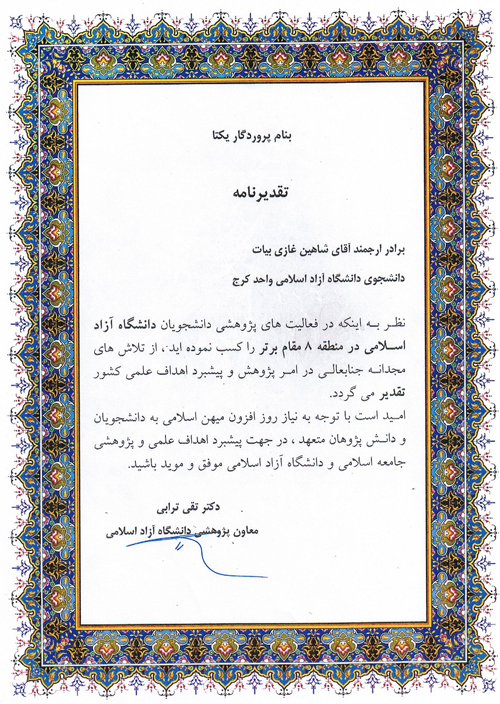 بنام پروردگار یکتا
تقدیرنامه
برادر ارجمند آقای شاهین غازی بیات
دانشجوی دانشگاه آزاد اسلامی واحد کرج
نظر به اینکه در فعالیت های پژوهشی دانشجویان دانشگاه آزاد
اسلامی در منطقه ۸ مقام برتر را کسب نموده اید، از تلاش های
مجدانه جنابعالی در امر پژوهش و پیشبرد اهداف علمی کشور
تقدیر می گردد.
امید است با توجه به نیاز روز افزون میهن اسلامی به دانشجویان
و دانش پژوهان متعهد، در جهت پیشبرد اهداف علمی و پژوهشی
جامعه اسلامی و دانشگاه آزاد اسلامی موفق و موید باشید.
دکتر تقی ترابی
معاون پژوهشی دانشگاه آزاد اسلامی